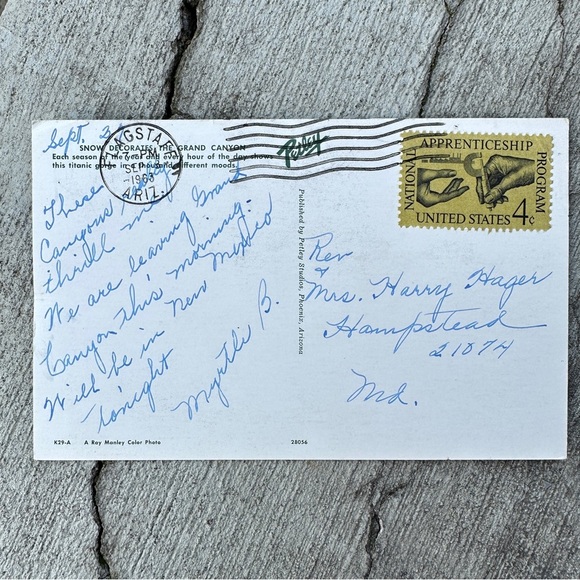 Sept. 3
SNOW DECORATES THE GRAND CANYON
Each season of the year and every hour of the day shows
this titanic gorge in a thousand different moods.
FLAGSTAFF
PM
SEP
1963
ARIZ.
Petley
NATIONAL APPRENTICESHIP PROGRAM
UNITED STATES 4¢
These
Canyons
thrill me.
We are leaving Grand
Canyon this morning.
Will be in New Mexico
tonight
Myrtle B.
Published by Petley Studios, Phoenix, Arizona
Rev
&
Mrs. Harry Hager
Hampstead
21074
Md.
K29-A A Ray Manley Color Photo 28056